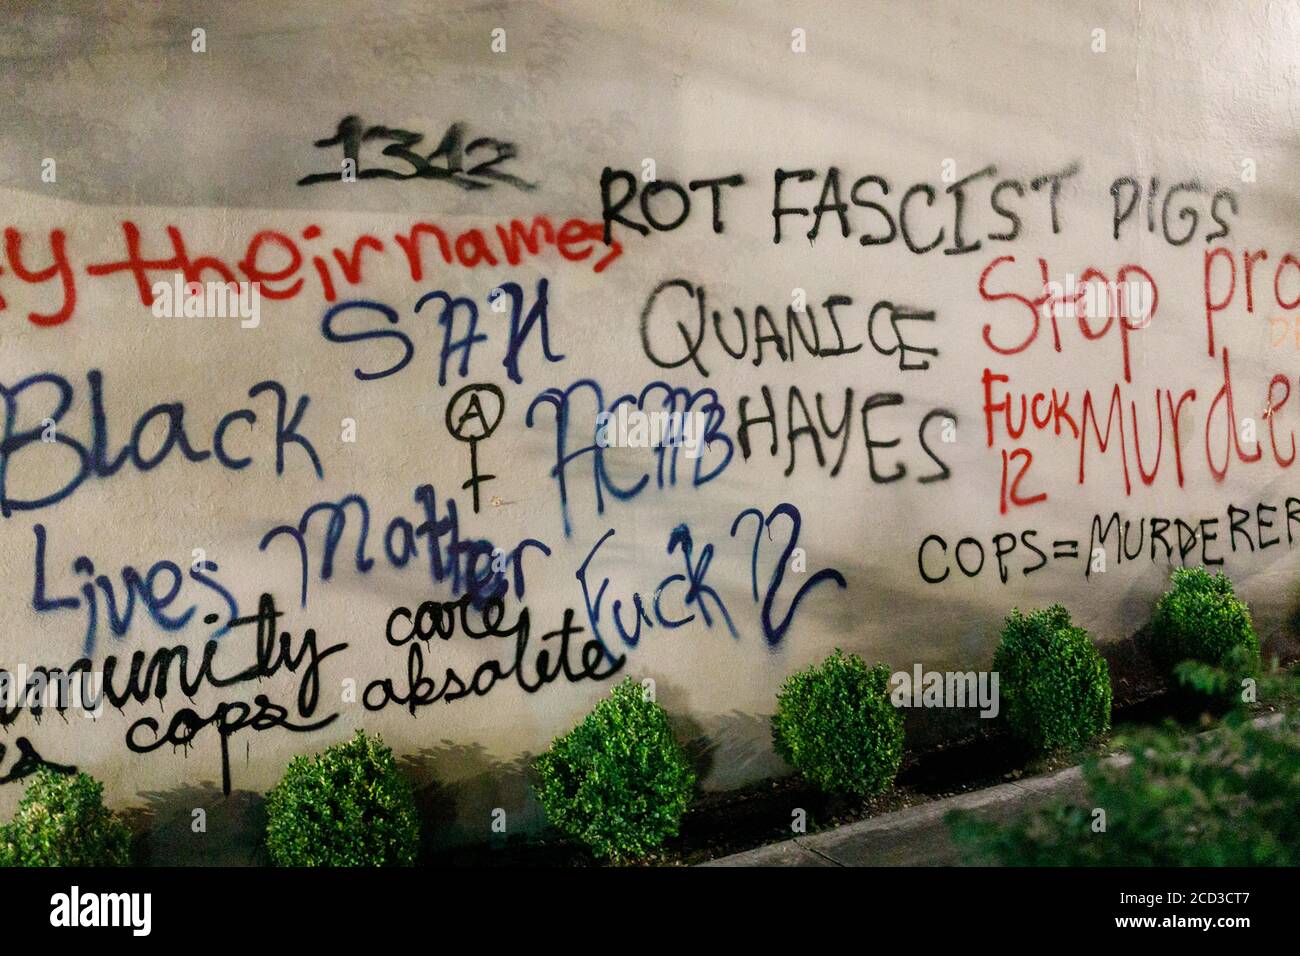 1312
ROT FASCIST PIGS
their names
SAH
QUANICE
HAYES
Stop
Murde
FUCK
12
Black
Lives Matter
A
ACAB
Fuck 12
COPS=MURDERER
care
cops absolete
alamy
Image ID: 2CD3CT7
www.alamy.com